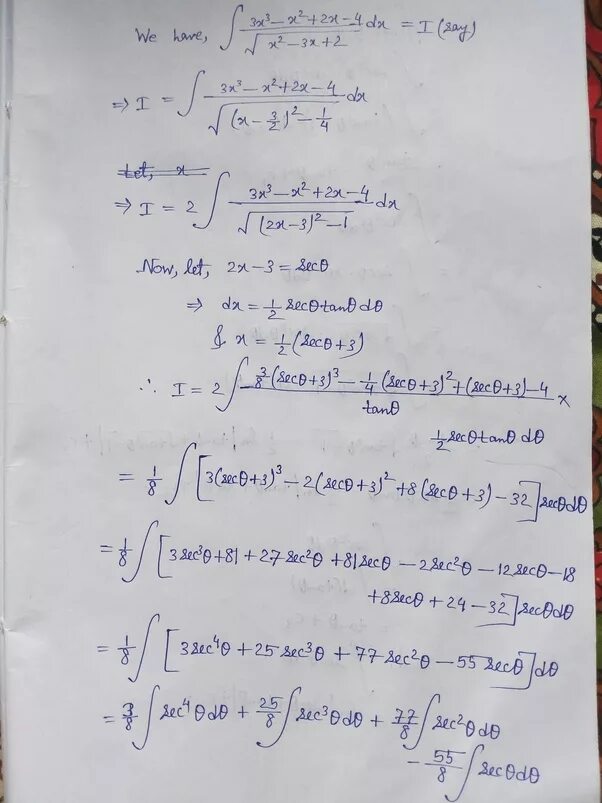 We have, ∫ (3x³ − x² + 2x − 4)/√(x² − 3x + 2) dx = I (say)
⇒ I = ∫ (3x³ − x² + 2x − 4)/√((x − 3/2)² − 1/4) dx
Let, x
⇒ I = 2 ∫ (3x³ − x² + 2x − 4)/√((2x−3)² − 1) dx
Now, let, 2x − 3 = secθ
⇒ dx = 1/2 secθ tanθ dθ
& x = 1/2 (secθ + 3)
∴ I = 2 ∫ (3/8 (secθ+3)³ − 1/4 (secθ+3)² + (secθ+3) − 4)/tanθ ×
1/2 secθ tanθ dθ
= 1/8 ∫ [3(secθ+3)³ − 2(secθ+3)² + 8(secθ+3) − 32] secθ dθ
= 1/8 ∫ [3sec³θ + 81 + 27sec²θ + 81secθ − 2sec²θ − 12secθ − 18
+ 8secθ + 24 − 32] secθ dθ
= 1/8 ∫ [3sec⁴θ + 25sec³θ + 77sec²θ − 55secθ] dθ
= 3/8 ∫ sec⁴θ dθ + 25/8 ∫ sec³θ dθ + 77/8 ∫ sec²θ dθ
− 55/8 ∫ secθ dθ